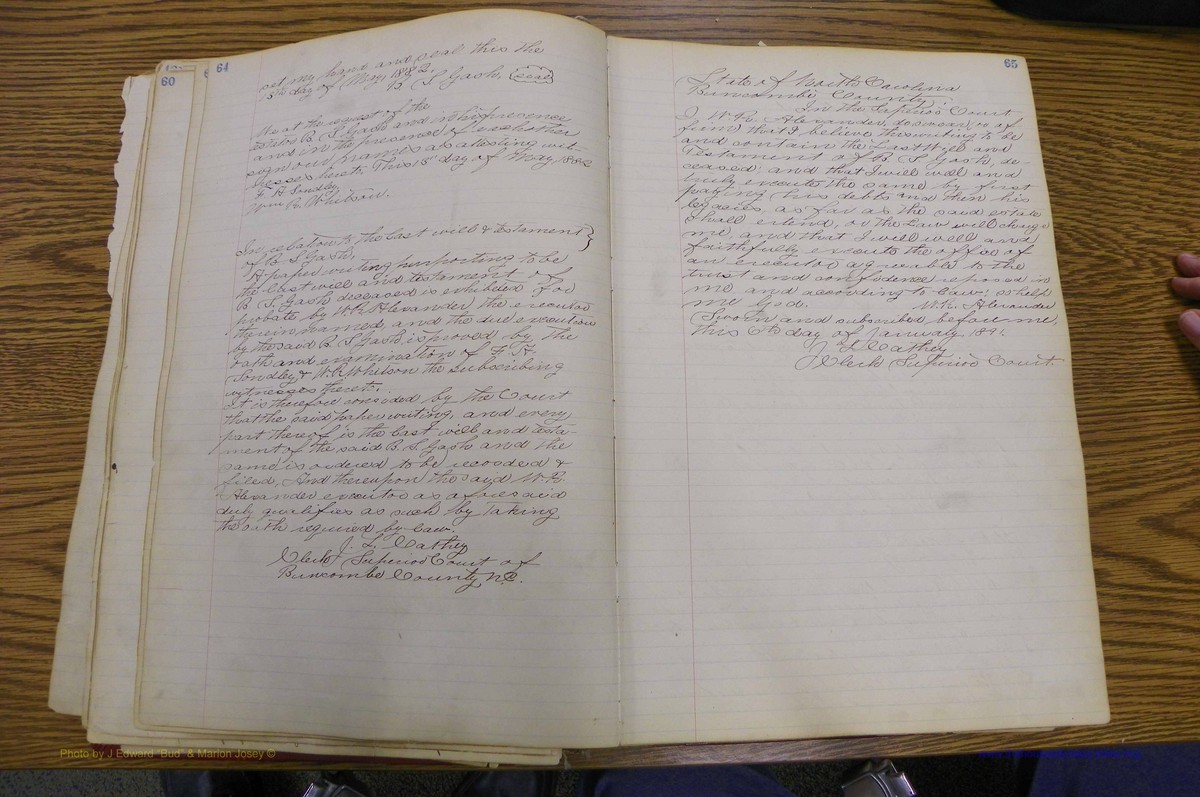 60
64
set my hand and seal this the
13th day of May 1882.
B. S. Gash, (seal)
We at the request of the
testator B. S. Gash and in his presence
and in the presence of each other
sign our names as attesting wit-
nesses hereto. This 13 day of May 1882
F. A. Sondley
Wm R. Whitson.
In re probate the last will & testament }
of B. S. Gash,
A paper writing purporting to be
the last will and testament of
B. S. Gash deceased is exhibited for
probate by W. R. Alexander the executor
therein named, and the due execution
by the said B. S. Gash is proved by the
oath and examination of F. A.
Sondley & W. R. Whitson the subscribing
witnesses thereto,
It is therefore considered by the Court
that the said paper writing, and every
part thereof is the last will and testa-
ment of the said B. S. Gash and the
same is ordered to be recorded &
filed, And thereupon the said W. R.
Alexander executor as aforesaid
duly qualifies as such by taking
the oath required by law.
J. L. Cathey
Clerk Superior Court of
Buncombe County N.C.
65
State of North Carolina
Buncombe County,
In the Superior Court
I, W. R. Alexander, do swear, or af
firm, that I believe this writing to be
and contain the Last Will and
Testament of B. S. Gash, de-
ceased; and that I will well and
truly execute the same by first
paying his debts and then his
legacies, as far as the said estate
shall extend, or the Law will charge
me, and that I will well and
faithfully execute the office of
an executor agreeable to the
trust and confidence reposed in
me, and according to law; so help
me God. W. R. Alexander
Sworn and subscribed before me,
this 6th day of January 1891.
J L Cathey
Clerk Superior Court.
Photo by J Edward "Bud" & Marion Josey ©